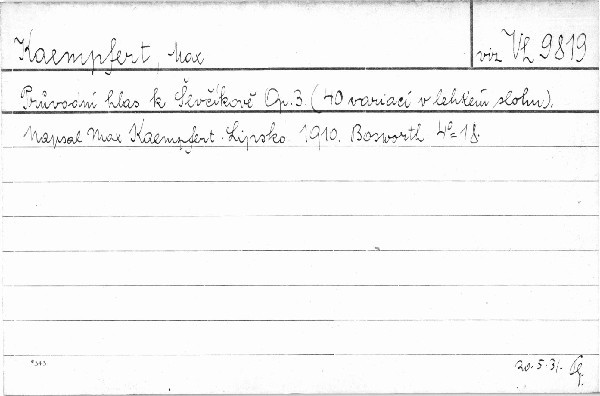 Kaempfert, Max
viz VL 9819
Průvodní hlas k Ševčíkově Op. 3. (40 variací v lehkém slohu).
Napsal Max Kaempfert. Lipsko 1910. Bosworth 4°=18.
*343
20.5.31.